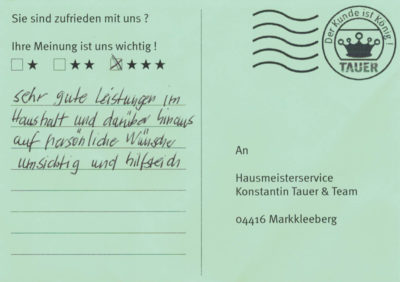 Sie sind zufrieden mit uns ?
Ihre Meinung ist uns wichtig !
☐ ★ ☐ ★★ ☒ ★★★
sehr gute Leistungen im
Haushalt und darüber hinaus
auf persönliche Wünsche
umsichtig und hilfreich
Der Kunde ist König !
TAUER
An
Hausmeisterservice
Konstantin Tauer & Team
04416 Markkleeberg